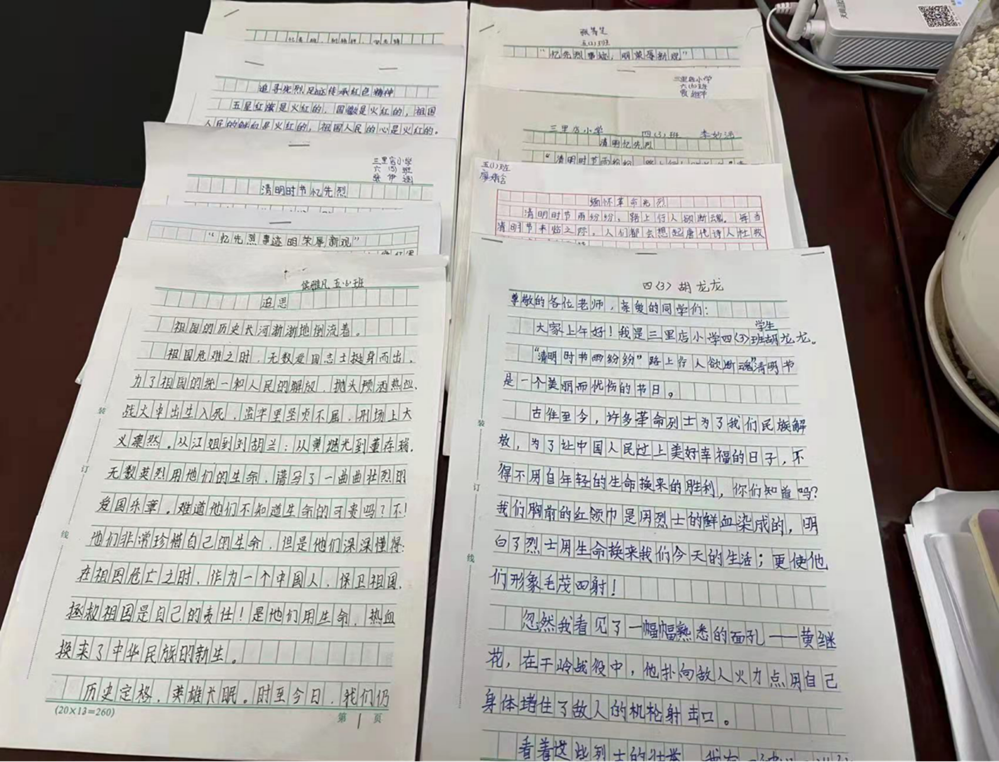 追寻先烈足迹传承红色精神
五星红旗是火红的，国徽是火红的，祖国
人民的鲜血是火红的，祖国人民的心是火红的。
三里店小学
六(3)班
清明时节忆先烈
“忆先烈事迹明荣辱新观”
五小班
祖国的历史大河渐渐地倒流着。
祖国危难之时，无数爱国志士挺身而出，
为了祖国的统一和人民的解放，抛头颅洒热血，
战火中出生入死，监牢里坚贞不屈，刑场上大
义凛然。从江姐到刘胡兰；从黄继光到董存瑞，
无数英烈用他们的生命，谱写了一曲曲壮烈的
爱国乐章。难道他们不知道生命的可贵吗？不！
他们非常珍惜自己的生命，但是他们深深懂得：
在祖国危亡之时，作为一个中国人，保卫祖国，
拯救祖国是自己的责任！是他们用生命，热血
换来了中华民族的新生。
历史定格，英雄长眠。时至今日，我们仍
(20×13=260)
第1页
装
订
线
五(1)班
“忆先烈事迹，明荣辱新观”
三里店小学
六(3)班
三里店小学 四(3)班
清明忆先烈
五(1)班
缅怀革命先烈
清明时节雨纷纷，路上行人欲断魂。每当
清明节来临之际，人们都会想起唐代诗人杜牧
四(3) 胡龙龙
尊敬的各位老师，亲爱的同学们：
大家上午好！我是三里店小学四(3)班学生胡龙龙。
“清明时节雨纷纷”路上行人欲断魂”清明节
是一个美丽而忧伤的节日。
古往至今，许多革命烈士为了我们民族解
放，为了让中国人民过上美好幸福的日子，不
得不用自年轻的生命换来的胜利，你们知道吗？
我们胸前的红领巾是用烈士的鲜血染成的，明
白了烈士用生命换来我们今天的生活；更使他
们形象毛茂四射！
忽然我看见了一幅幅熟悉的面孔——黄继
花，在干岭战役中，他扑向敌人火力点用自己
身体堵住了敌人的机枪射击口。
看着这些烈士的壮举，我
装
订
线